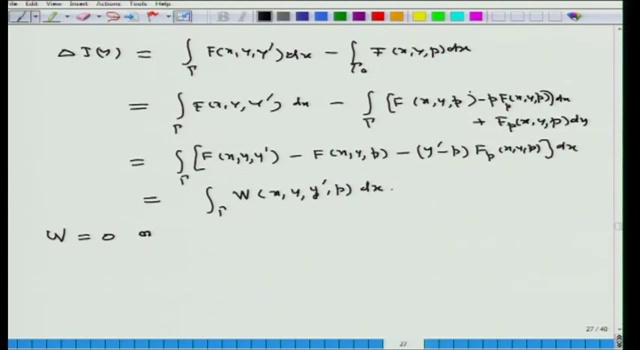 File View Insert Actions Tools Help
Δ J(y) = ∫_Γ F(x,y,y')dx − ∫_Γ₀ F(x,y,p)dx
= ∫_Γ F(x,y,y') dx − ∫_Γ [F(x,y,p) − p F_p(x,y,p)]dx
+ F_p(x,y,p)dy
= ∫_Γ [F(x,y,y') − F(x,y,p) − (y'−p) F_p(x,y,p)]dx
= ∫_Γ W(x,y,y',p) dx.
W = 0 on
27 / 40
27